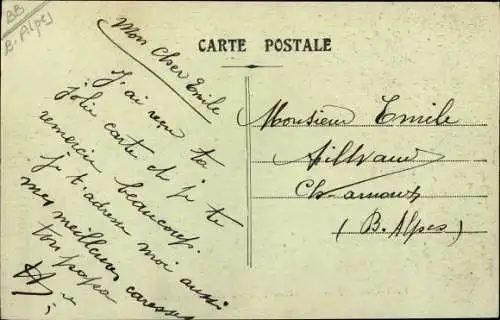 BB
B. Alpes
CARTE POSTALE
Mon cher Emile
J'ai reçu ta
jolie carte et je te
remercie beaucoup.
je t'adresse moi aussi
mes meilleures caresses
ton papa
Monsieur Emile
(B. Alpes)